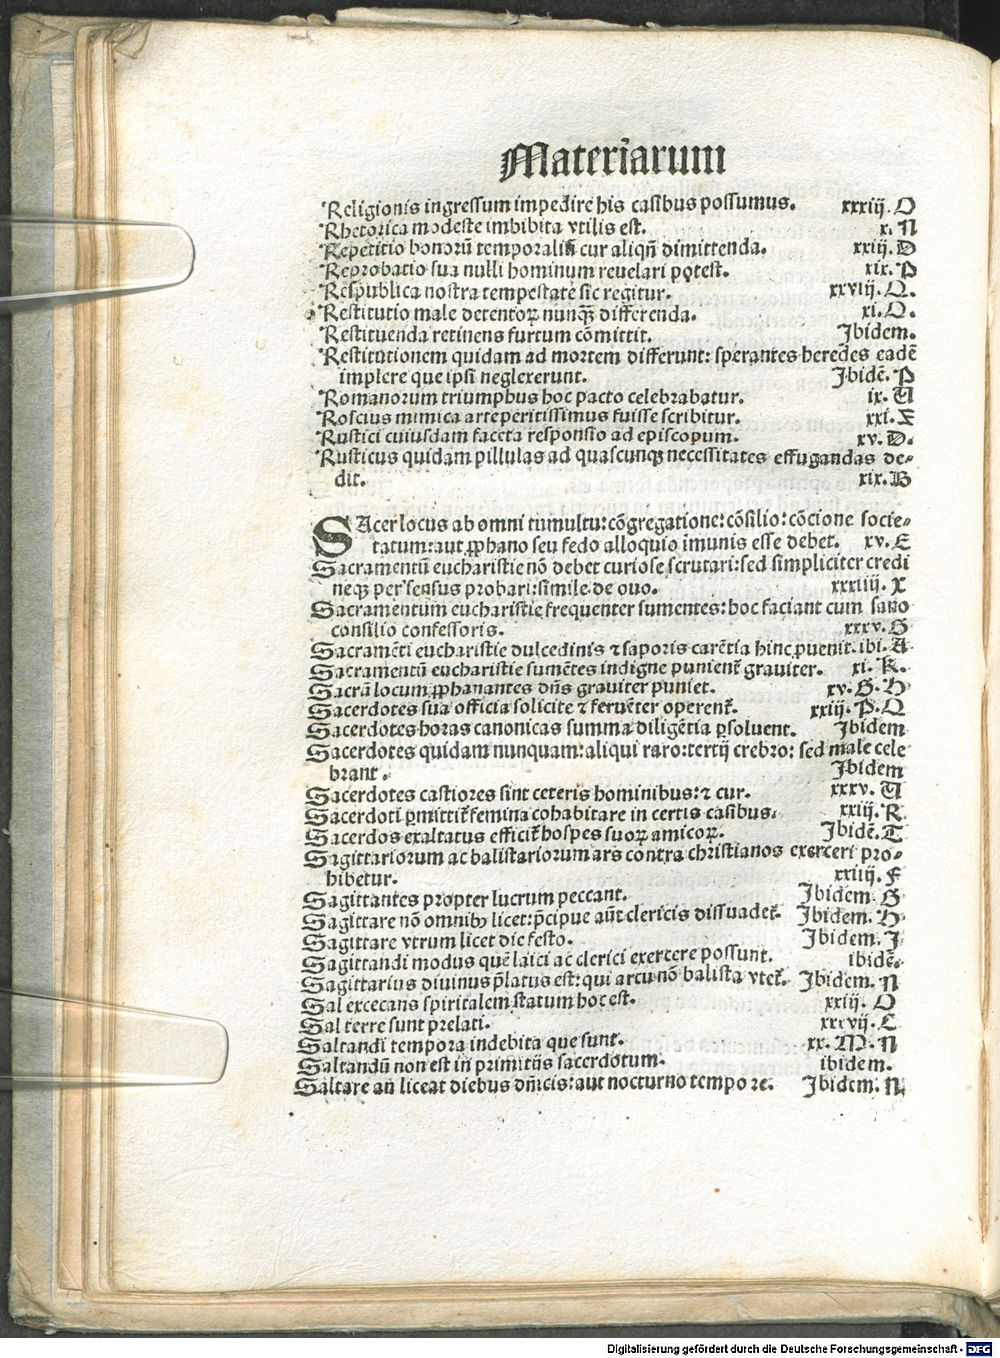 Materiarum
Religionis ingressum impedire his casibus possumus. xxxiij. O
Rhetorica modeste imbibita vtilis est. x. N
Repetitio bonorū temporaliū cur aliqn̄ dimittenda. xxiij. D
Reprobatio sua nulli hominum reuelari potest. xix. P
Respublica nostra tempestate sic regitur. xxviij. Q.
Restitutio male detentoꝝ nunqꝫ differenda. xi. O.
Restituenda retinens furtum cōmittit. Ibidem.
Restitutionem quidam ad mortem differunt: sperantes heredes eadē
implere que ipsi neglexerunt. Ibidē. P
Romanorum triumphus hoc pacto celebrabatur. ix.
Roscius mimica arte peritissimus fuisse scribitur. xxi. F
Rustici cuiusdam faceta responsio ad episcopum. xv. D.
Rusticus quidam pillulas ad quascunqꝫ necessitates effugandas de-
dit. xix. B
SAcer locus ab omni tumultu: cōgregatione: cōsilio: cōcione socie-
tatum: aut ꝓphano seu fedo alloquio imunis esse debet. xv. E
Sacramentū eucharistie nō debet curiose scrutari: sed simpliciter credi
neqꝫ per sensus probari: simile de ouo. xxxiiij. X
Sacramentum eucharistie frequenter sumentes: hoc faciant cum sano
consilio confessoris. xxxv. G
Sacramēti eucharistie dulcedinis ⁊ saporis carētia hinc ꝓuenit. ibi. A
Sacramentū eucharistie sumētes indigne punient̄ grauiter. xi. K.
Sacrā locum ꝓphanantes dn̄s grauiter puniet. xv. G. H
Sacerdotes sua officia solicite ⁊ feruēter operent̄. xxiij. P. Q
Sacerdotes horas canonicas summa diligētia ꝑsoluent. Ibidem
Sacerdotes quidam nunquam: aliqui raro: tertij crebro: sed male cele
brant. Ibidem
Sacerdotes castiores sint ceteris hominibus: ⁊ cur. xxxv.
Sacerdoti ꝑmittit̄ femina cohabitare in certis casibus. xxiij. R.
Sacerdos exaltatus efficit̄ hospes suoꝝ amicoꝝ. Ibidē. T
Sagittariorum ac balistariorum ars contra christianos exerceri pro-
hibetur. xxiiij. F
Sagittantes propter lucrum peccant. Ibidem G
Sagittare nō omnibꝫ licet: p̄cipue aūt clericis dissuadet̄. Ibidem. H
Sagittare vtrum licet die festo. Ibidem. I
Sagittandi modus quē laici ac clerici exercere possunt. ibidē.
Sagittarius diuinus p̄latus est: qui arcu nō balista vtet̄. Ibidem. N
Sal excecans spiritalem statum hoc est. xxiij. O
Sal terre sunt prelati. xxvij. C
Saltandi tempora indebita que sunt. xx. M. N
Saltandū non est in primitijs sacerdotum. ibidem.
Saltare an liceat diebus dn̄icis: aut nocturno tempore. Ibidem. N.
Digitalisierung gefördert durch die Deutsche Forschungsgemeinschaft - DFG